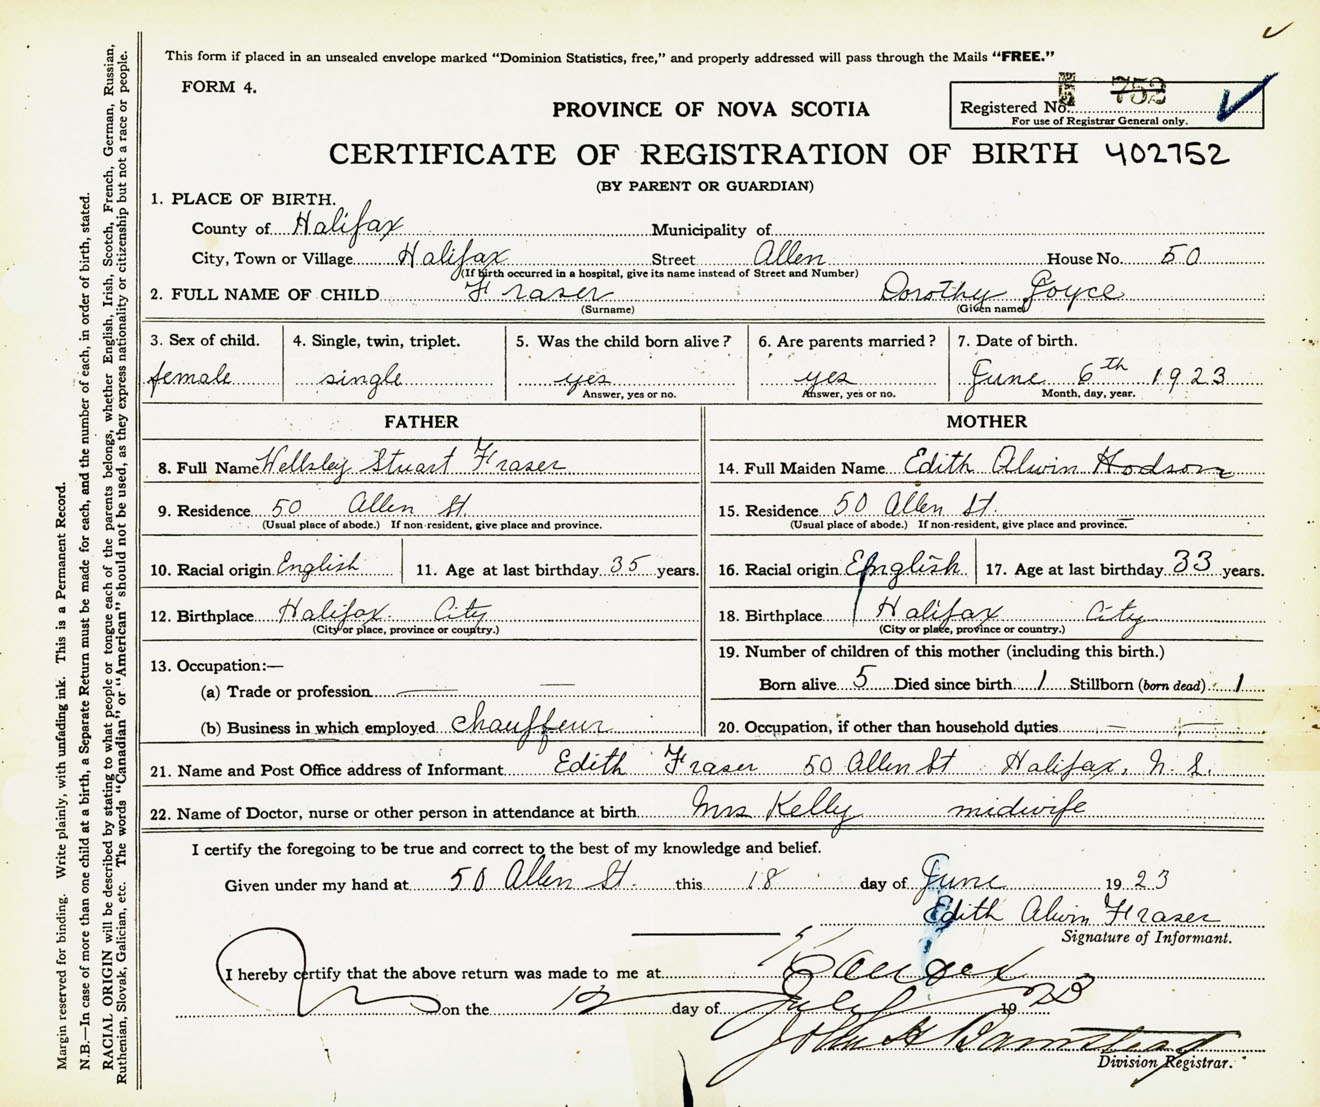 This form if placed in an unsealed envelope marked “Dominion Statistics, free,” and properly addressed will pass through the Mails “FREE.”
FORM 4.
Registered No. 752
For use of Registrar General only.
PROVINCE OF NOVA SCOTIA
CERTIFICATE OF REGISTRATION OF BIRTH 402752
(BY PARENT OR GUARDIAN)
1. PLACE OF BIRTH.
County of Halifax Municipality of
City, Town or Village Halifax Street Allen House No. 50
(If birth occurred in a hospital, give its name instead of Street and Number)
2. FULL NAME OF CHILD Fraser Dorothy Joyce
(Surname) (Given name)
3. Sex of child. 4. Single, twin, triplet. 5. Was the child born alive? 6. Are parents married? 7. Date of birth.
female single yes yes June 6th 1923
Answer, yes or no. Answer, yes or no. Month, day, year.
FATHER MOTHER
8. Full Name Wellsley Stuart Fraser 14. Full Maiden Name Edith Alwin Hodson
9. Residence 50 Allen St. 15. Residence 50 Allen St.
(Usual place of abode.) If non-resident, give place and province. (Usual place of abode.) If non-resident, give place and province.
10. Racial origin English 11. Age at last birthday 35 years. 16. Racial origin English 17. Age at last birthday 33 years.
12. Birthplace Halifax City 18. Birthplace Halifax City
(City or place, province or country.) (City or place, province or country.)
13. Occupation:— 19. Number of children of this mother (including this birth.)
(a) Trade or profession — — Born alive 5 Died since birth 1 Stillborn (born dead) 1
(b) Business in which employed Chauffeur 20. Occupation, if other than household duties — —
21. Name and Post Office address of Informant Edith Fraser 50 Allen St Halifax, N.S.
22. Name of Doctor, nurse or other person in attendance at birth Mrs Kelly midwife
I certify the foregoing to be true and correct to the best of my knowledge and belief.
Given under my hand at 50 Allen St. this 18 day of June 1923
Edith Alwin Fraser
Signature of Informant.
I hereby certify that the above return was made to me at
on the 12 day of July 1923
John H Barnstead
Division Registrar.
Margin reserved for binding. Write plainly, with unfading ink. This is a Permanent Record.
N.B.—In case of more than one child at a birth, a Separate Return must be made for each, and the number of each, in order of birth, stated.
RACIAL ORIGIN will be described by stating to what people or tongue each of the parents belongs, whether English, Irish, Scotch, French, German, Russian,
Ruthenian, Slovak, Galician, etc. The words “Canadian” or “American” should not be used, as they express nationality or citizenship but not a race or people.